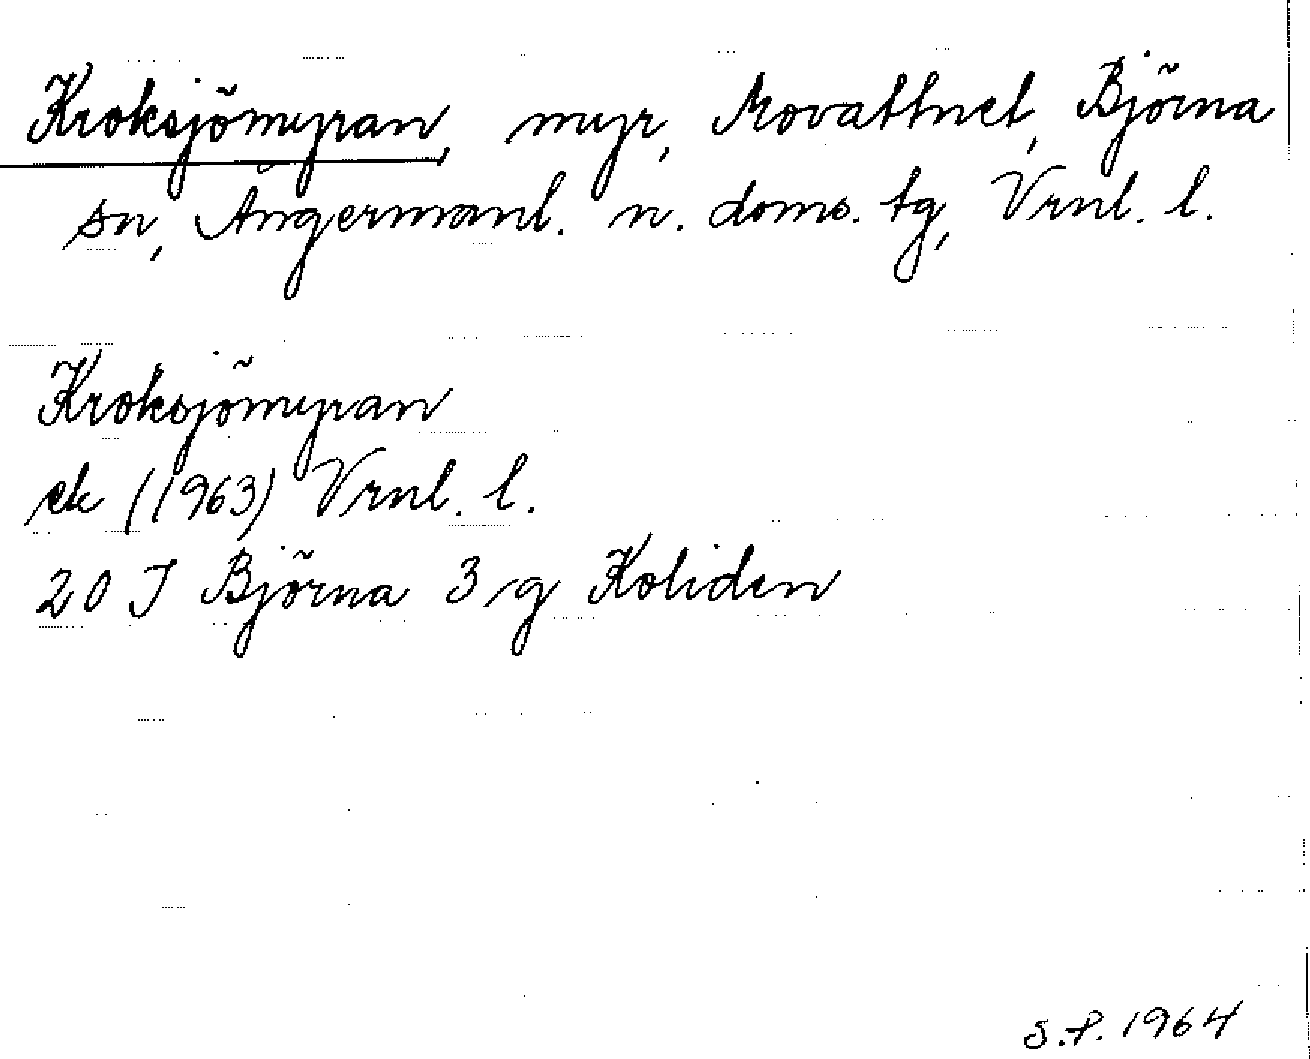 Kroksjömyran, myr, Movattnet, Björna
sn, Ångermanl. n. doms. tg, Vrnl. l.
Kroksjömyran
ek (1963) Vrnl. l.
20 J Björna 3 g Koliden
S.P. 1964